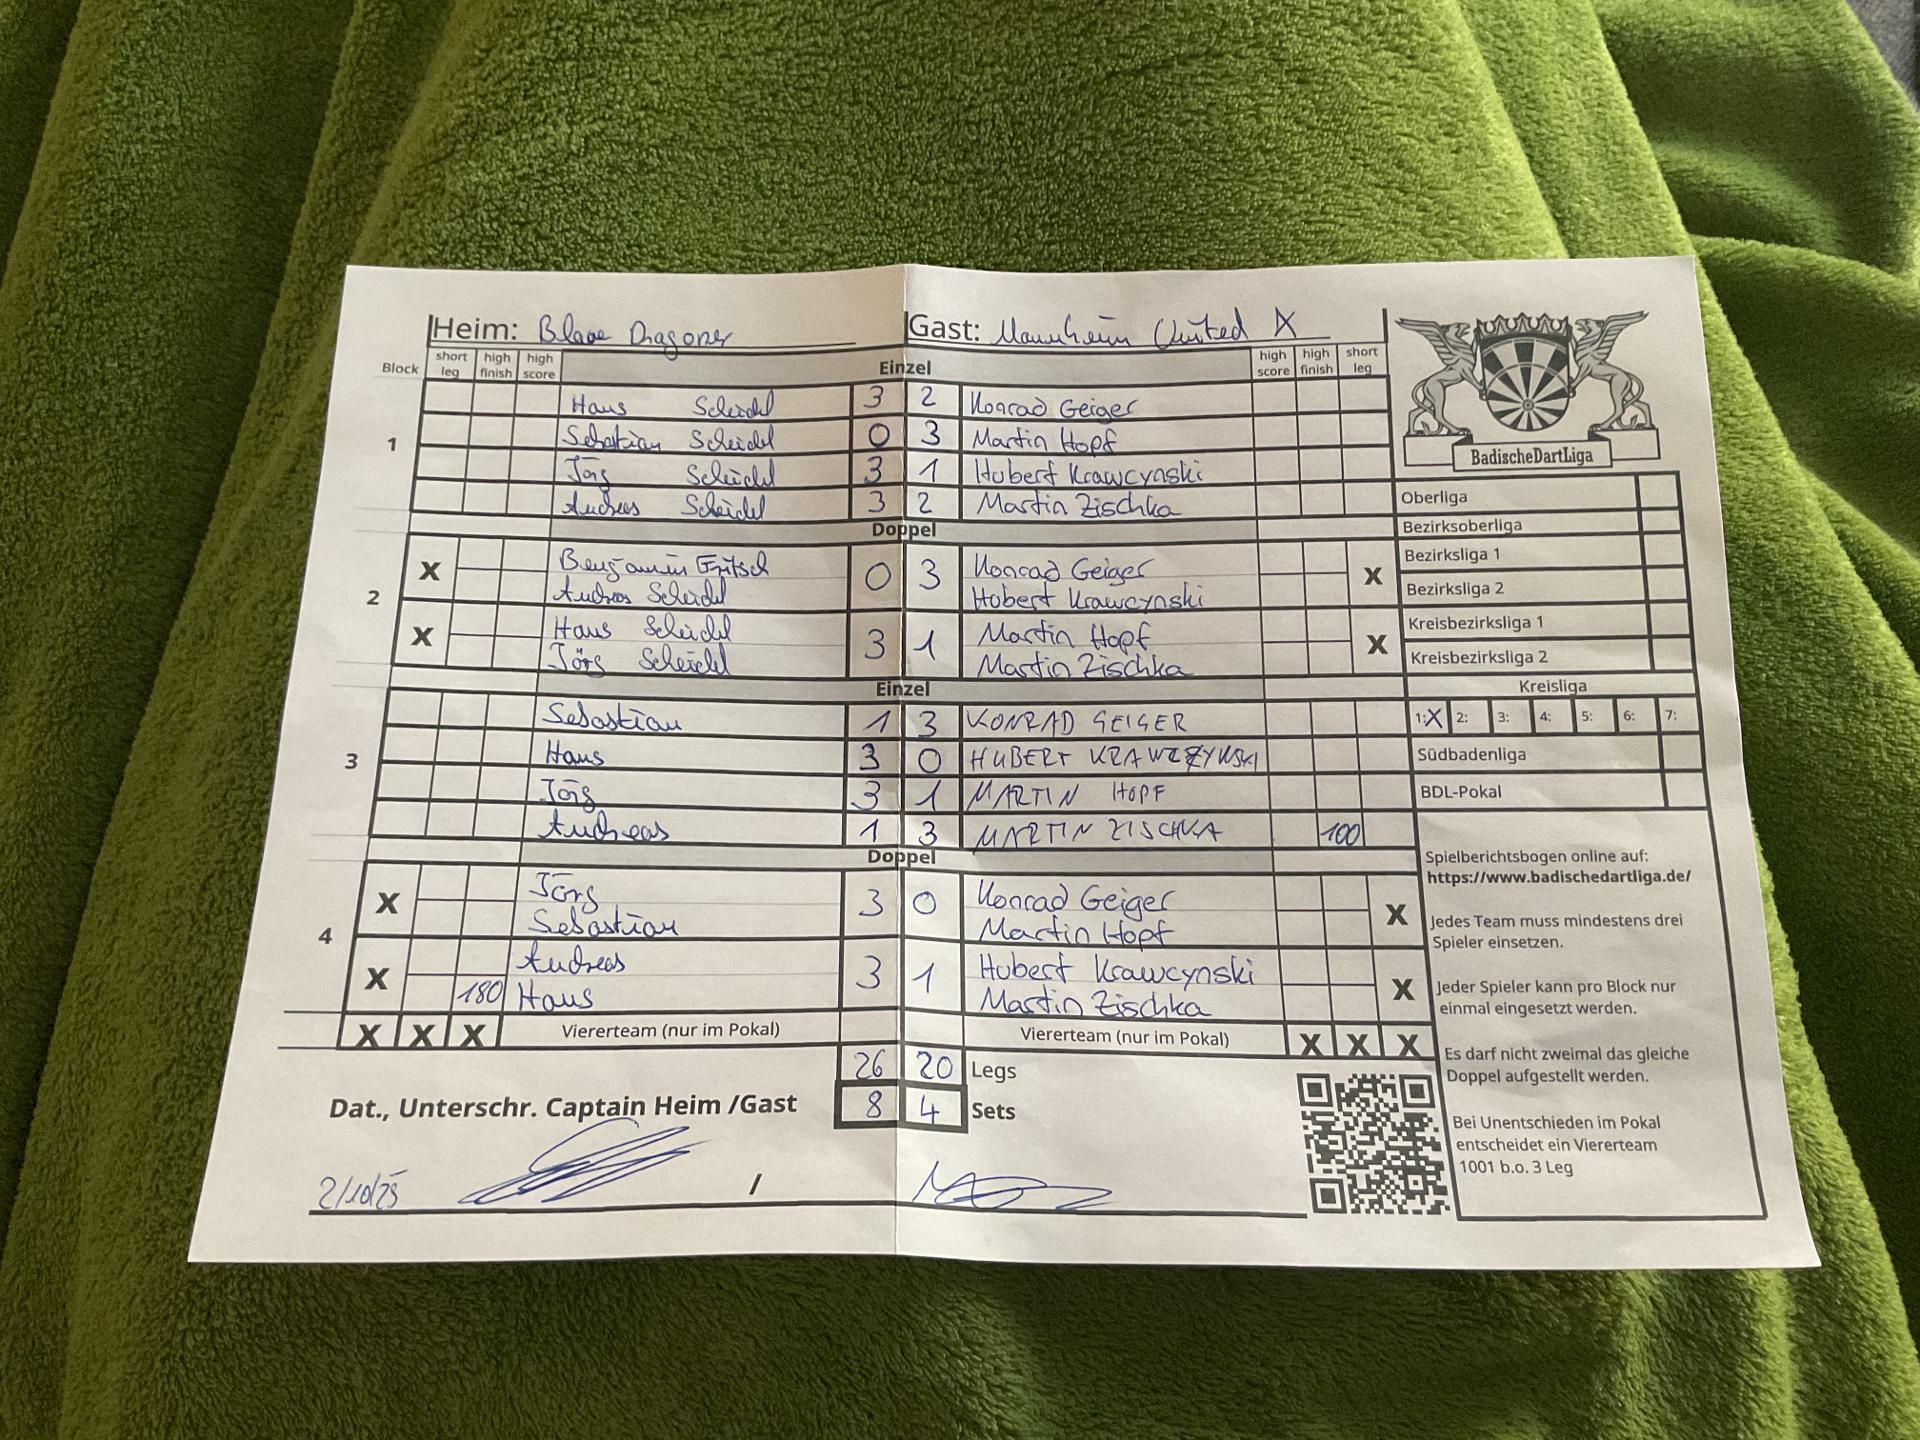 Heim: Blaue Dragoner Gast: Mannheim United X
Block short leg high finish high score Einzel high score high finish short leg
1
Hans Scheidl 3 2 Konrad Geiger
Sebastian Scheidl 0 3 Martin Hopf
Jörg Scheidl 3 1 Hubert Krawcynski
Andreas Scheidl 3 2 Martin Zischka
Doppel
2
X Benjamin Fritsch 0 3 Konrad Geiger X
Andreas Scheidl Hubert Krawcynski
X Hans Scheidl 3 1 Martin Hopf X
Jörg Scheidl Martin Zischka
Einzel
3
Sebastian 1 3 KONRAD GEIGER
Hans 3 0 HUBERT KRAWCZYNSKI
Jörg 3 1 MARTIN HOPF
Andreas 1 3 MARTIN ZISCHKA 100
Doppel
4
X Jörg 3 0 Konrad Geiger X
Sebastian Martin Hopf
X Andreas 3 1 Hubert Krawcynski X
180 Hans Martin Zischka
X X X Viererteam (nur im Pokal) Viererteam (nur im Pokal) X X X
26 20 Legs
8 4 Sets
Dat., Unterschr. Captain Heim /Gast
2/10/25 /
BadischeDartLiga
Oberliga
Bezirksoberliga
Bezirksliga 1
Bezirksliga 2
Kreisbezirksliga 1
Kreisbezirksliga 2
Kreisliga
1: X 2: 3: 4: 5: 6: 7:
Südbadenliga
BDL-Pokal
Spielberichtsbogen online auf:
https://www.badischedartliga.de/
Jedes Team muss mindestens drei
Spieler einsetzen.
Jeder Spieler kann pro Block nur
einmal eingesetzt werden.
Es darf nicht zweimal das gleiche
Doppel aufgestellt werden.
Bei Unentschieden im Pokal
entscheidet ein Viererteam
1001 b.o. 3 Leg